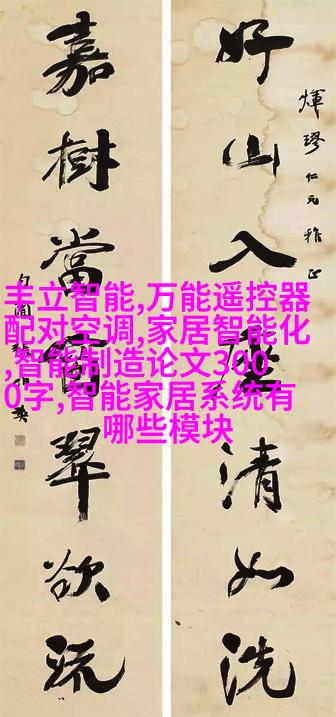 好山入座清如洗
嘉樹當窗翠欲流
丰立智能,万能遥控器
配对空调,家居智能化
,智能制造论文300
0字,智能家居系统有
哪些模块